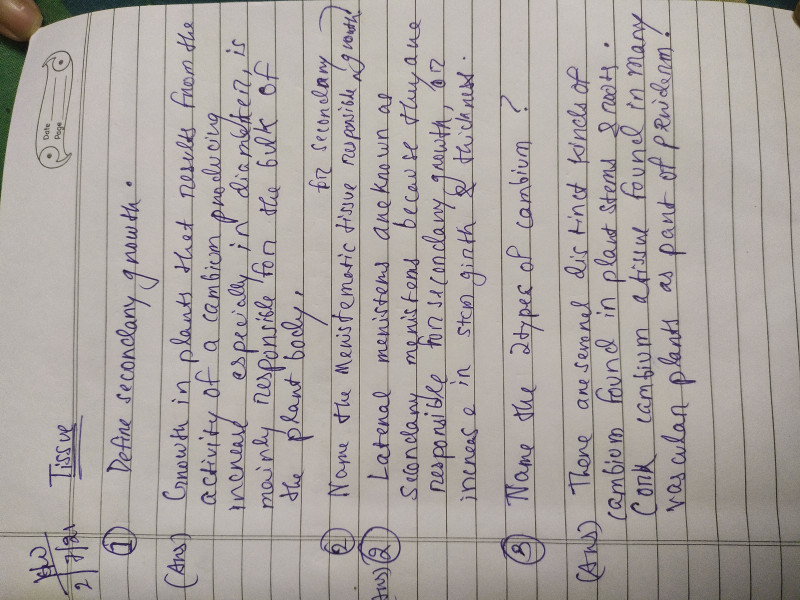 Date
Page
H/W
2/7/21
Tissue
① Define secondary growth.
(Ans) Growth in plants that results from the
activity of a cambium producing
increase especially in diameter, is
mainly responsible for the bulk of
the plant body.
for secondary
② Name the Meristematic tissue responsible growth
(Ans) ② Lateral meristems are known as
secondary meristems because they are
responsible for secondary growth, or
increase in stem girth & thickness.
③ Name the 2 types of cambium ?
(Ans) There are several distinct kinds of
cambium found in plant stems & roots.
Cork cambium a tissue found in many
vascular plants as part of periderm.